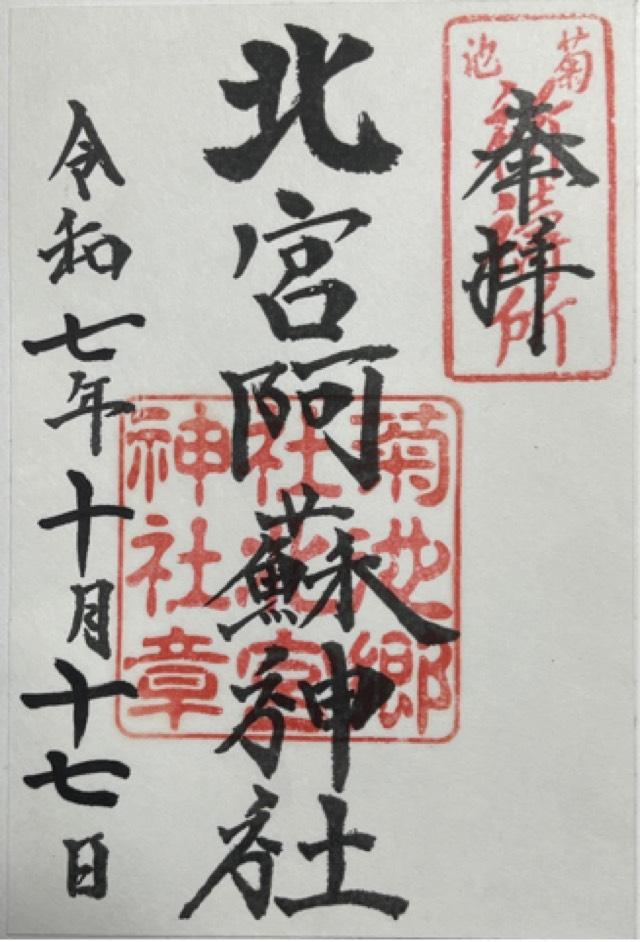 菊池
奉拝
北宮阿蘇神社
菊池郷
社北宮
神社章
令和七年十月十七日